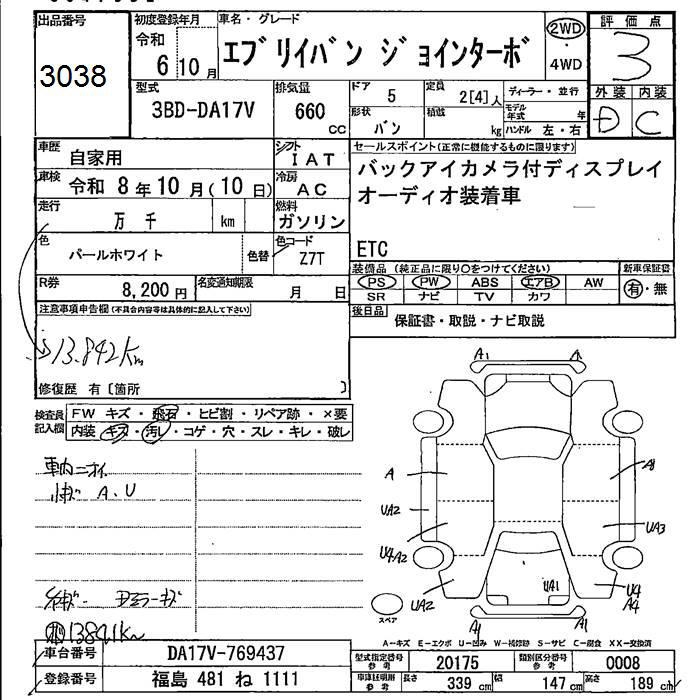 出品番号
3038
初度登録年月
令和
6 10月
車名・グレード
エブリイバン ジョインターボ
2WD
・
4WD
評価点
3
外装 内装
D C
型式
3BD-DA17V
排気量
660
CC
ドア 5
定員 2[4]人
形状 バン
積載 kg
ディーラー・並行
モデル年式 年
ハンドル 左・右
車歴 自家用
シフト IAT
車検 令和 8年10月(10日)
冷房 AC
走行 万 千 km
燃料 ガソリン
色 パールホワイト
色替
色コード Z7T
R券 8,200円
名変通知期限 月 日
セールスポイント(正常に機能するものに限ります)
バックアイカメラ付ディスプレイ
オーディオ装着車
ETC
装備品(純正品に限り○をつけてください)
新車保証書
PS PW ABS エアB AW
SR ナビ TV カワ
有・無
後日品 保証書・取説・ナビ取説
注意事項申告欄(不具合内容等は具体的に記入して下さい)
13.842Km
修復歴 有〔箇所 〕
検査員
記入欄
FW キズ・飛石・ヒビ割・リペア跡・×要
内装 キズ・汚レ・コゲ・穴・スレ・キレ・破レ
A、U
13841Km
A1 A
A A1
UA2 UA3
U4A2
UA1
UA2 U4
A4
A1 A1
スペア
A-キズ E-エクボ U-凹み W-補修跡 S-サビ C-腐食 XX-交換済
車台番号 DA17V-769437
登録番号 福島 481 ね 1111
型式指定番号
参考
20175
類別区分番号
参考
0008
車庫証明用
参考
長さ 339 cm
幅 147 cm
高さ 189 cm